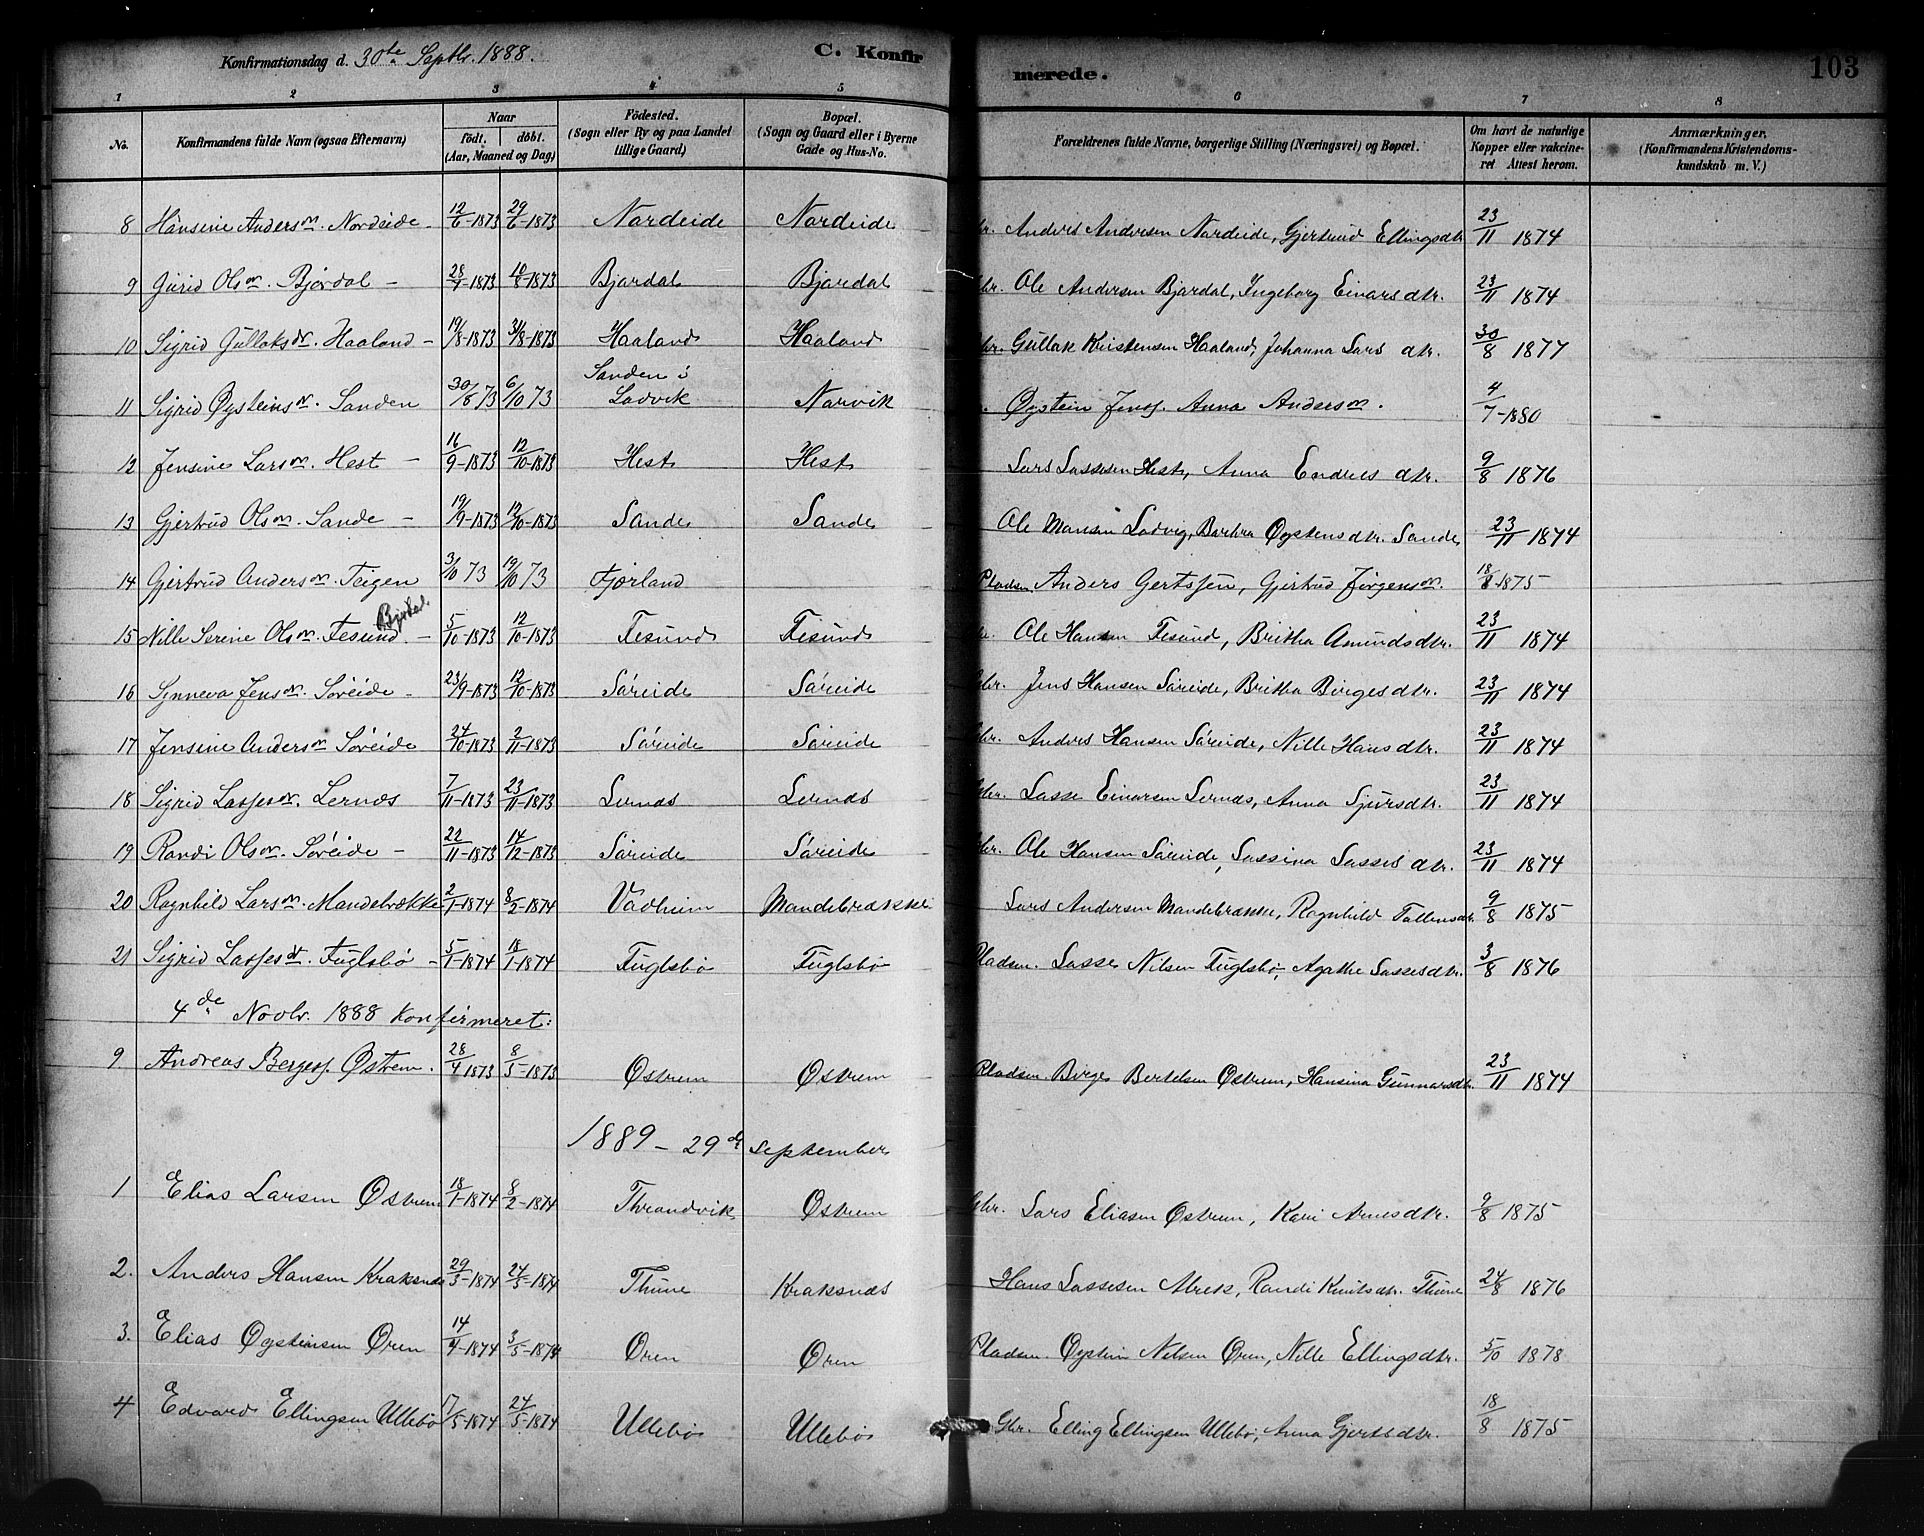 Konfirmationsdag d. 30te Septbr. 1888.
C. Konfirmerede.
103
1 2 3 4 5 6 7 8
No. Konfirmandens fulde Navn (ogsaa Efternavn) Naar født. døbt. (Aar, Maaned og Dag) Fødested. (Sogn eller By og paa Landet tillige Gaard.) Bopæl. (Sogn og Gaard eller i Byerne Gade og Hus-No. Forældrenes fulde Navne, borgerlige Stilling (Næringsvei) og Bopæl. Om havt de naturlige Kopper eller vakcineret Attest herom. Anmærkninger. (Konfirmandens Kristendomskundskab m. V.)
8 Hansine Andersdr. Nordeide - 12/6-1873 29/6-1873 Nordeide Nordeide Gbr. Anders Andersen Nordeide, Gjertrud Ellingsdtr 23/11 1874
9 Gurid Olsdr. Bjørdal - 28/7-1873 10/8-1873 Bjørdal Bjørdal Gbr. Ole Andersen Bjørdal, Ingeborg Einarsdtr. 23/11 1874
10 Sigrid Gullaksdr. Haaland - 19/8-1873 31/8-1873 Haaland Haaland Gbr. Gullak Kristensen Haaland, Johanna Lars dtr. 30/8 1877
11 Sigrid Øysteinsdr. Sanden 30/8 73 6/10 73 Sanden i Ladvik Narvik Øystein Jensf. Anna Andersdr. 4/7-1880
12 Jensine Larsdr. Hest - 16/9-1873 12/10-1873 Hest Hest Lars Lassesen Hest, Anna Endres dtr. 9/8 1876
13 Gjertrud Olsdr. Sande - 19/9-1873 12/10-1873 Sande Sande Ole Monsen Ladvig, Barbra Øystensdtr. Sande 23/11 1874
14 Gjertrud Andersdr. Teigen 3/10 73 19/10 73 Fjærland Pladsm. Anders Gertssen, Gjertrud Jørgensdr. 18/8 1875
15 Nille Serine Olsdr. Fesund - Bjordal. 5/10-1873 12/10-1873 Fesund Fesund Gbr. Ole Hansen Fesund, Britha Amundsdtr. 23/11 1874
16 Synneva Jensdr. Søreide - 23/9-1873 12/10-1873 Søreide Søreide Gbr. Jens Hansen Søreide, Britha Birgesdtr. 23/11 1874
17 Jensine Andersdr Søreide 24/10-1873 2/11-1873 Søreide Søreide Gbr. Anders Hansen Søreide, Nille Hansdtr. 23/11 1874
18 Sigrid Lassesdr. Lernæs 7/11-1873 23/11-1873 Lernæs Lernæs Gbr. Lasse Einarsen Lernæs, Anna Sjursdtr. 23/11 1874
19 Randi Olsdr. Søreide - 22/11-1873 14/12-1873 Søreide Søreide Gbr. Ole Hansen Søreide, Lassina Lasses dtr. 23/11 1874
20 Ragnhild Larsdr. Mandebrække 2/1-1874 8/2-1874 Vadheim Mandebrække Lars Andersen Mandebrække, Ragnhild Tollevsdr. 9/8 1875
21 Sigrid Lassesdt. Fuglsbø - 5/1-1874 18/1-1874 Fuglsbø Fuglsbø Pladsm. Lasse Nilsen Fuglsbø, Agathe Lassesdtr. 3/8 1876
4de Novbr. 1888 Konfirmeret:
9 Andreas Bergesf. Østrem. 28/4 1873 8/5-1873 Østrem Østrem Pladsm. Birge Bertelsen Østrem, Hansina Gunnarsdtr. 23/11 1874
1889 - 29de September
1 Elias Larsen Østrem 18/1-1874 8/2-1874 Thrandvik Østrem Gbr. Lars Eliasen Østrem, Kari Arnesdtr. 9/8 1875
2. Anders Hansen Kraksnæs 29/3-1874 24/5-1874 Thune Kraksnæs Hans Lassesen Alrek, Randi Knutsdtr. Thune 24/8 1876
3. Elias Øysteinsen Øren 14/4-1874 3/5-1874 Øren Øren Pladsm. Øystein Nilsen Øren, Nille Ellingsdtr. 5/10 1878
4 Edvard Ellingsen Ullebø 17/5-1874 24/5-1874 Ullebø Ullebø Gbr. Elling Ellingsen Ullebø, Anna Gjertsdtr. 18/8 1875